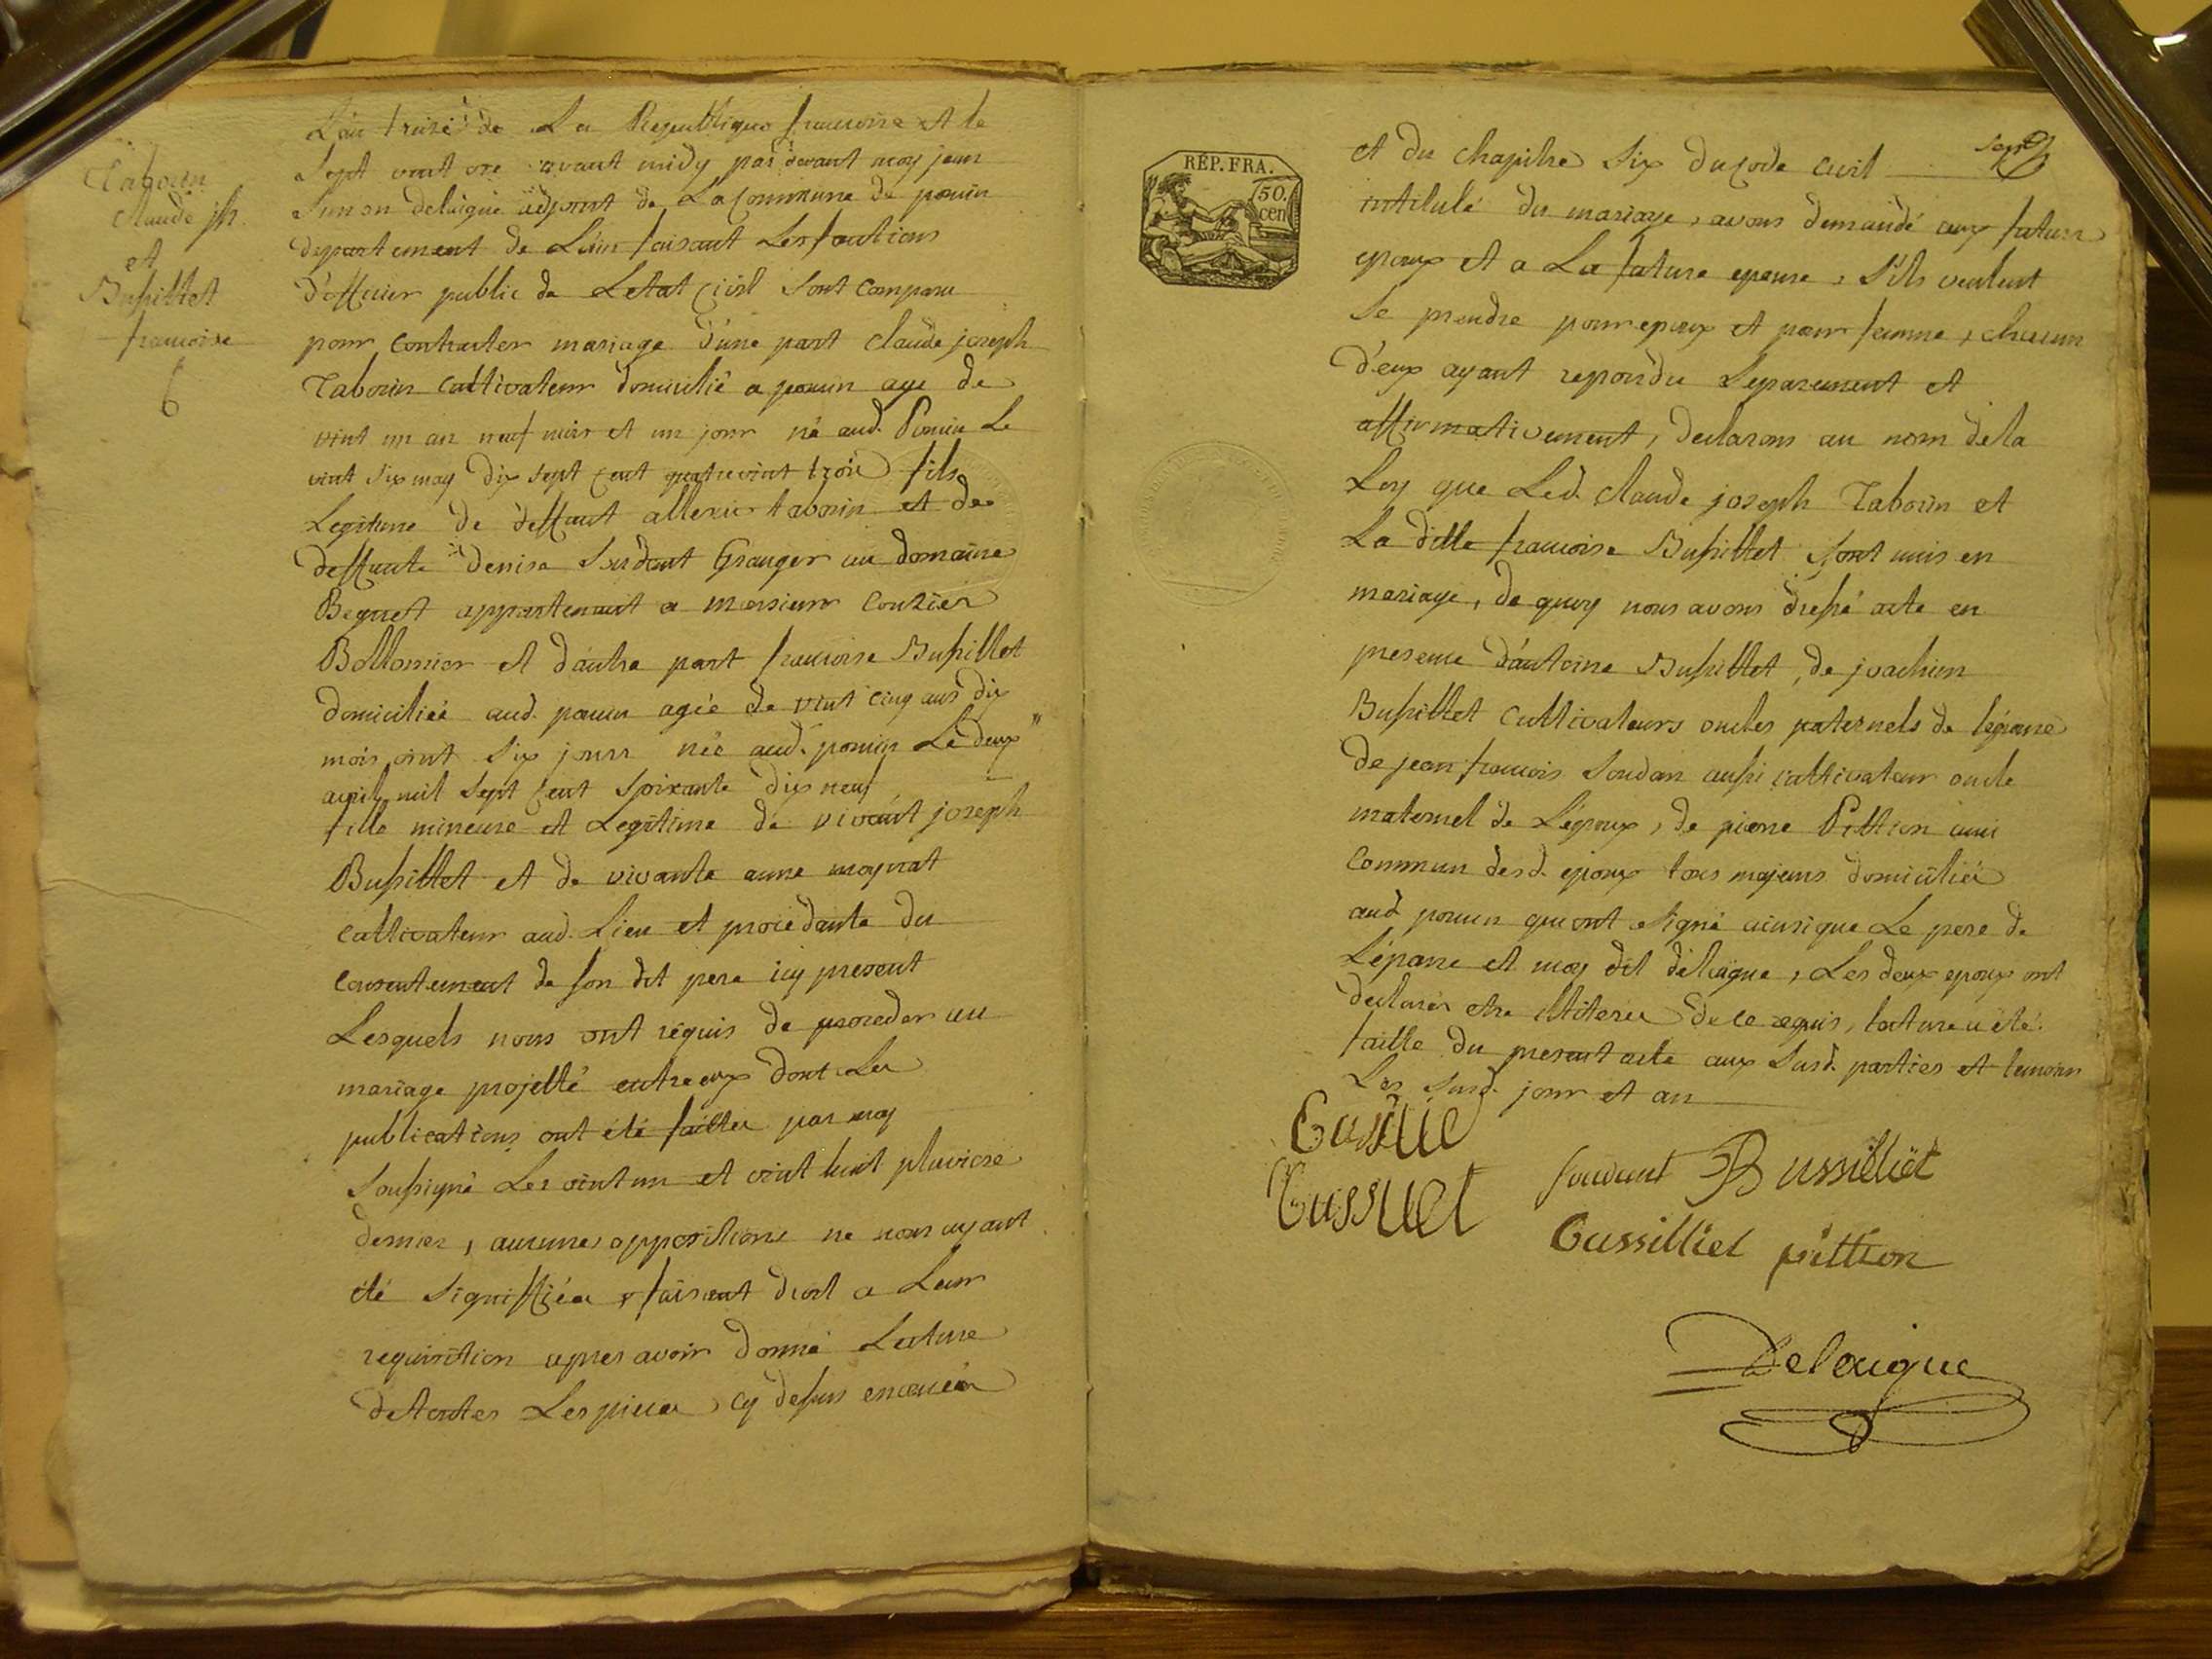 Tabouin
claude jph.
et
Bussillet
francoise
6
L'an treize de La Republique francoise et le
sept vent ose avant midy par devant moy jean
Simon delaigue adjoint de La Commune de poncin
departement de L'ain faisant Les fonctions
d'officier public de Letat civil sont comparu
pour contracter mariage d'une part claude joseph
Tabouin cultivateur domicilié a poncin age de
vint un an neuf mois et un jour né aud. Poncin Le
vint six may dix sept cent quatrevint trois fils
Legitime de deffunt tabouin et de
deffunte denise Granger au domaine
Beguet appartenant a monsieur
Bollomier et d'autre part francoise Bussillet
domiciliée aud. poncin agée de vint cinq ans dix
mois vint six jours née aud. poncin Le deux
avril mil sept cent soixante dix neuf
fille mineure et Legitime de vivant joseph
Bussillet et de vivante anne
cultivateur aud. Lieu et procedante du
consentement de son dit pere icy present
Lesquels nous ont requis de proceder au
mariage projetté entre eux dont Les
publications ont été faittes par moy
soussigné Les vint un et vint huit pluviose
dernier, aucunes oppositions ne nous ayant
été signiffiées faisant droit a Leur
requisition apres avoir donné Lecture
de toutes Les pieces cy dessus enoncées
RÉP. FRA.
50.
cen
sept
et du chapitre six du code civil
intitulé du mariage, avons demandé aux futur
epoux et a La future epouse, s'ils veulent
se prendre pour epoux et pour femme, chacun
d'eux ayant repondu separement et
affirmativement, declarons au nom de la
Loy que Led. claude joseph Tabouin et
La ditte francoise Bussillet sont unis en
mariage, de quoy nous avons dressé acte en
presence d'antoine Bussillet, de joachim
Bussillet cultivateurs oncles paternels de l'épouse
de jean francois soudan aussi cultivateur oncle
maternel de L'époux, de pierre Pittion ami
commun desd. epoux tous majeurs domiciliés
aud poncin qui ont signé ainsi que Le pere de
L'épouse et moy dit delaigue, Les deux epoux ont
declarés etre illiteres de ce requis, lecture a été
faitte du present acte aux susd. parties et temoins
Les susd. jour et an
soudant Bussilliet
Bussilliet pittion
Delaigue